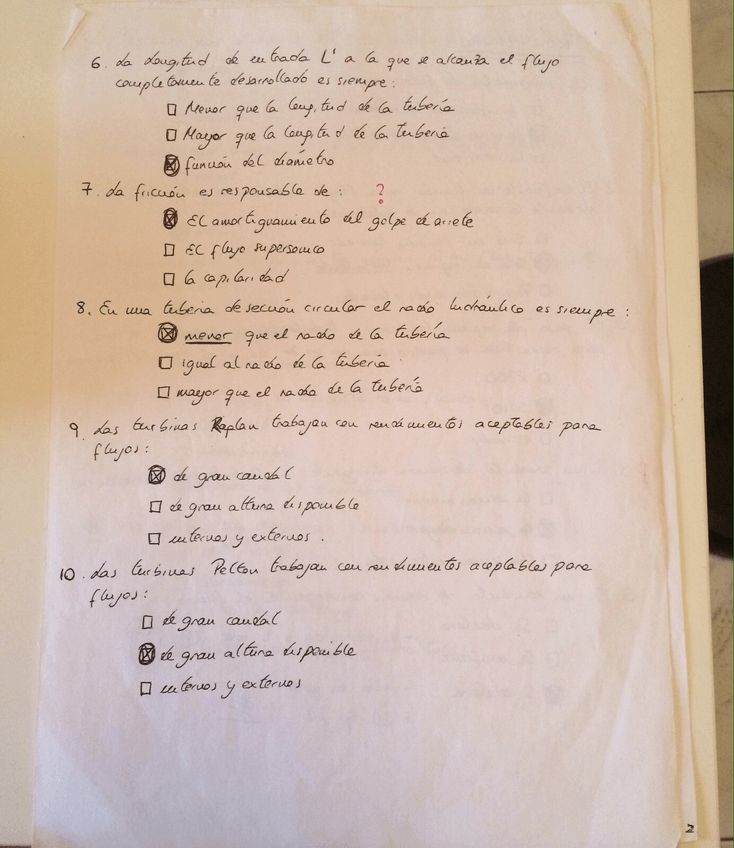 6. La Longitud de entrada L' a la que se alcanza el flujo
completamente desarrollado es siempre:
Menor que la longitud de la tubería
Mayor que la longitud de la tubería
función del diámetro
7. La fricción es responsable de: ?
El amortiguamiento del golpe de ariete
El flujo supersonico
la capilaridad
8. En una tuberia de sección circular el radio hidráulico es siempre:
menor que el radio de la tubería
igual al radio de la tubería
mayor que el radio de la tubería
9. Las turbinas Kaplan trabajan con rendimientos aceptables para
flujos:
de gran caudal
de gran altura disponible
internos y externos.
10. Las turbinas Pelton trabajan con rendimientos aceptables para
flujos:
de gran caudal
de gran altura disponible
internos y externos
2